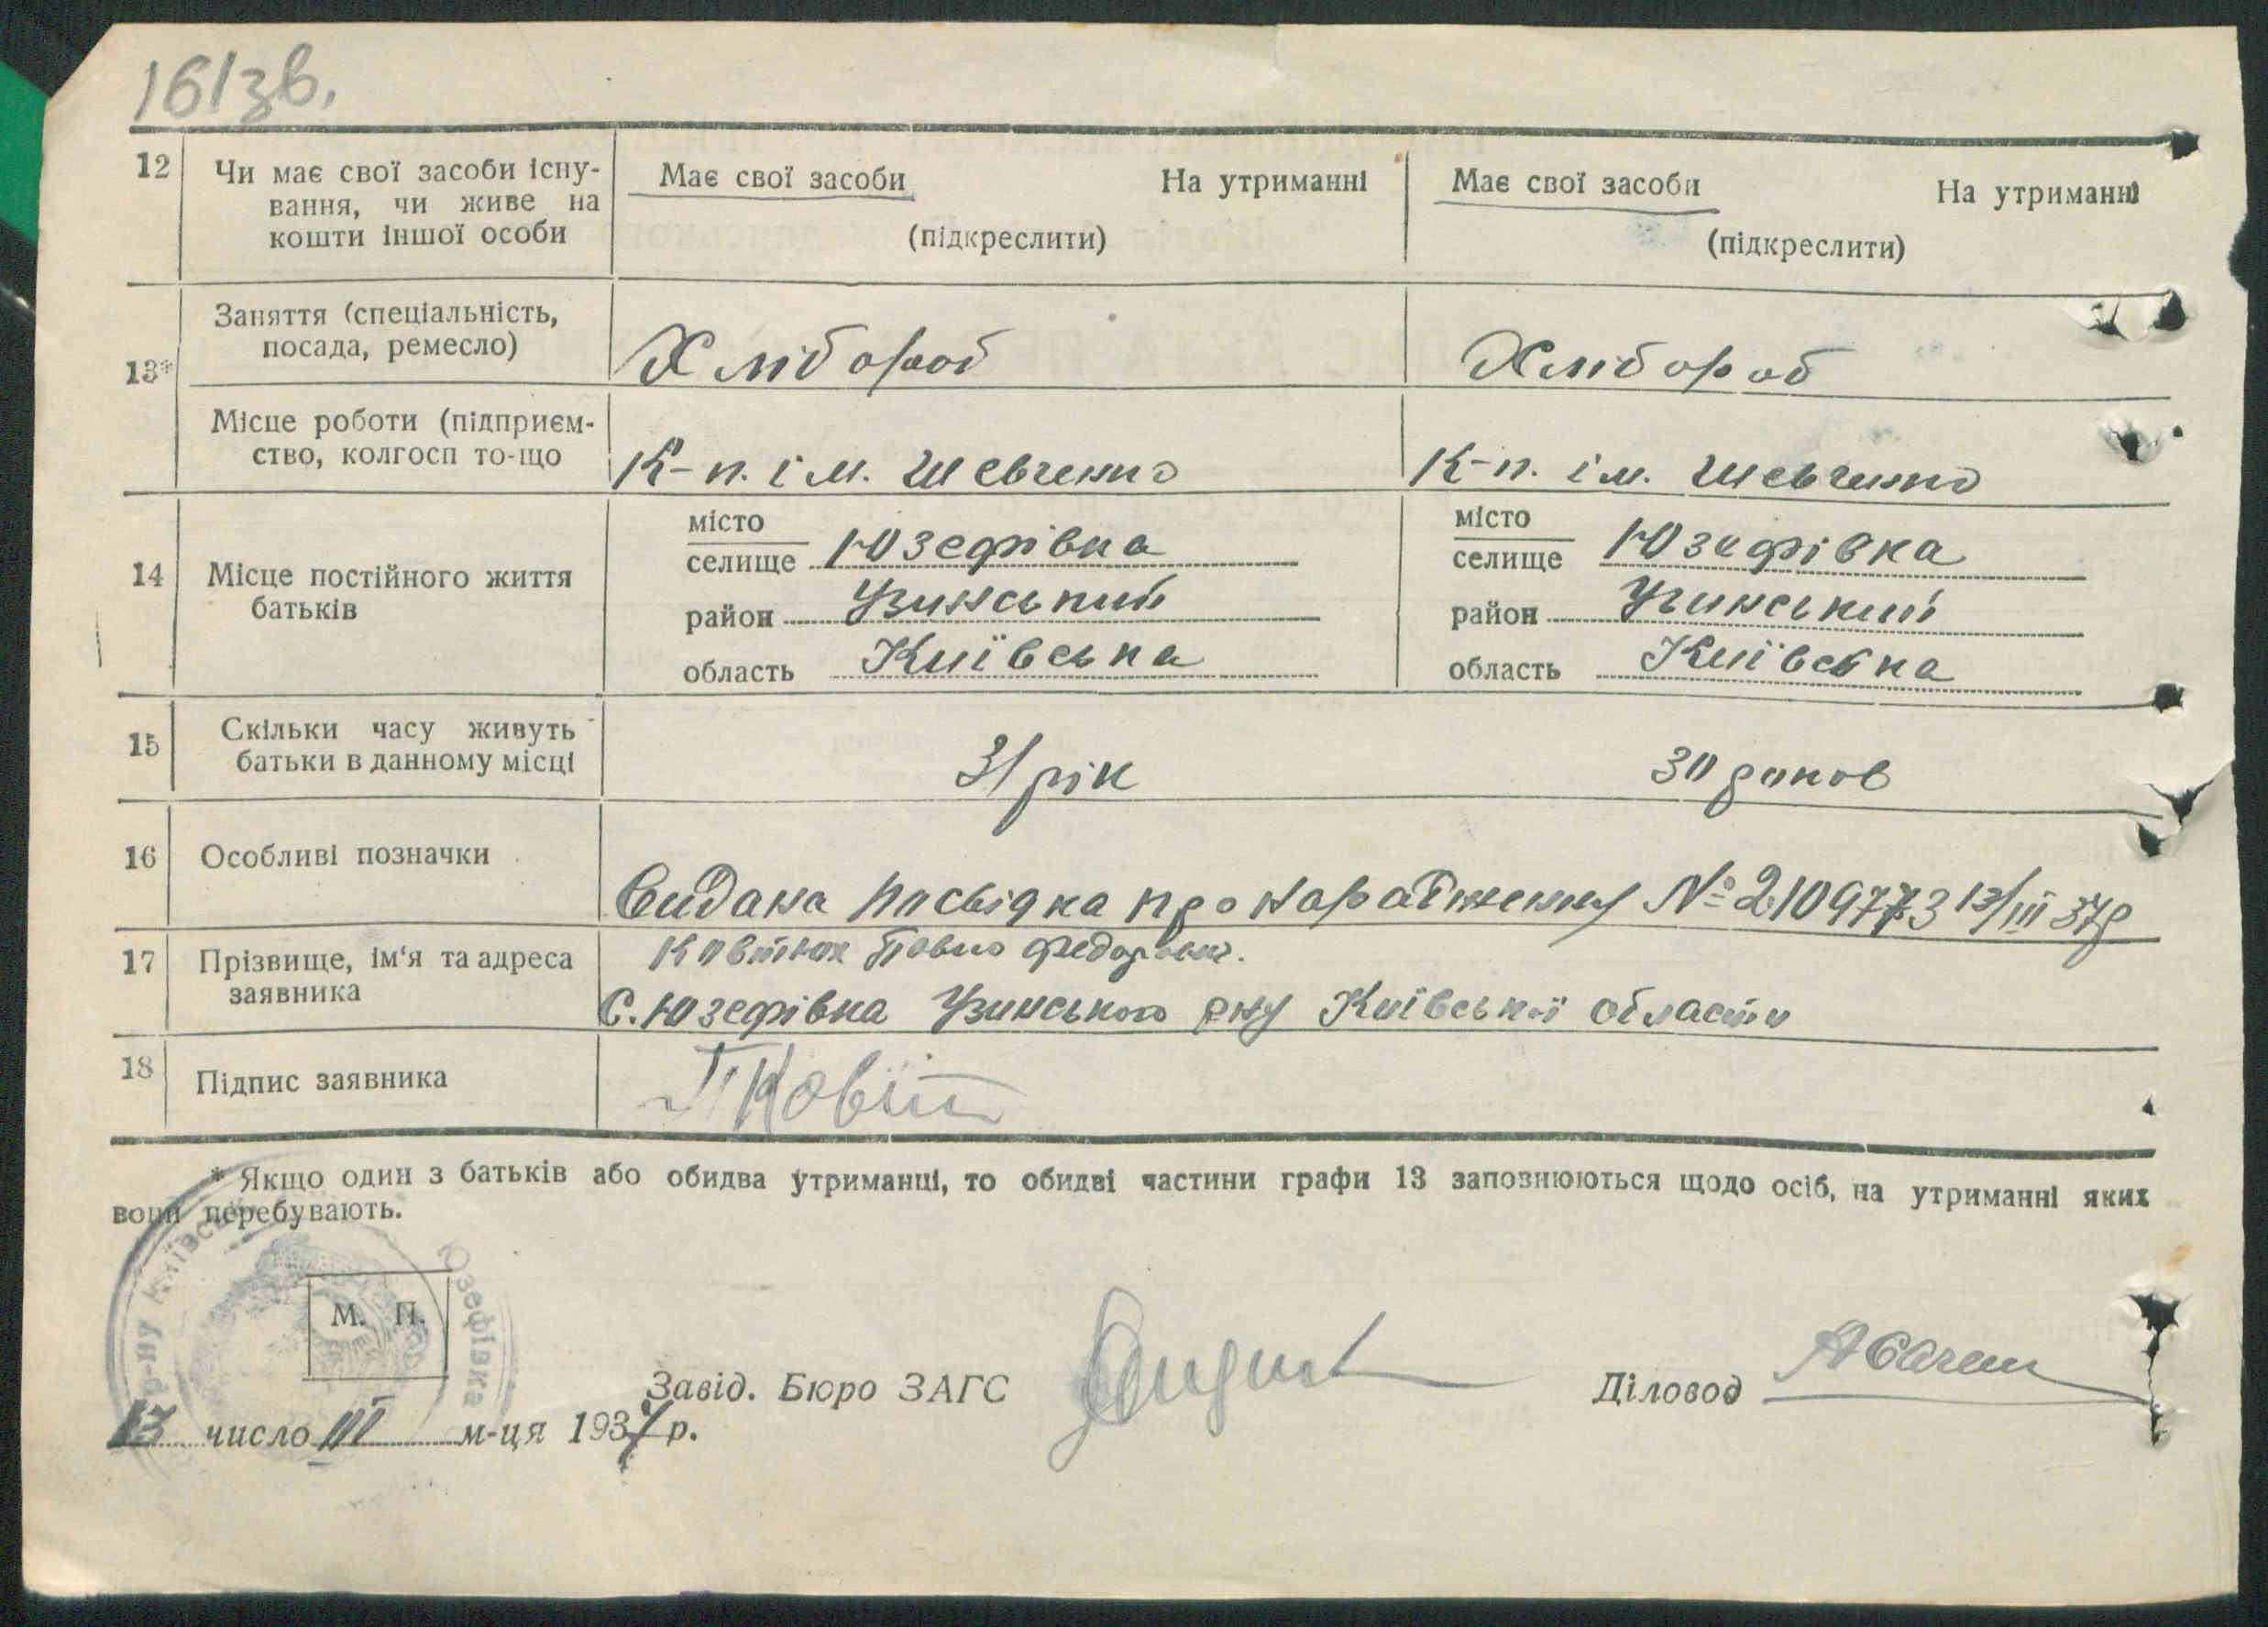 161зв.
12 Чи має свої засоби існу-
вання, чи живе на
кошти іншої особи
Має свої засоби На утриманні
(підкреслити)
Має свої засоби На утриманні
(підкреслити)
13*
Заняття (спеціальність,
посада, ремесло)
Хлібороб
Хлібороб
Місце роботи (підприєм-
ство, колгосп то-що
К-п. ім. Шевченко
К-п. ім. Шевченко
14 Місце постійного життя
батьків
місто
селище Юзефівка
район Узинський
область Київська
місто
селище Юзефівка
район Узинський
область Київська
15 Скільки часу живуть
батьки в данному місці
31 рік
30 роков
16 Особливі позначки
Видана посвідка про народження № 2109773 13/III 37р
17 Прізвище, ім‘я та адреса
заявника
Ковтюх Павло Федорович.
С. Юзефівка Узинського р-ну Київської области
18 Підпис заявника
ПКовт
* Якщо один з батьків або обидва утриманці, то обидві частини графи 13 заповнюються щодо осіб, на утриманні яких
вони перебувають.
р-ну Київсь
Юзефівка
М. П.
Завід. Бюро ЗАГС
Діловод
13 число III м-ця 1937 р.